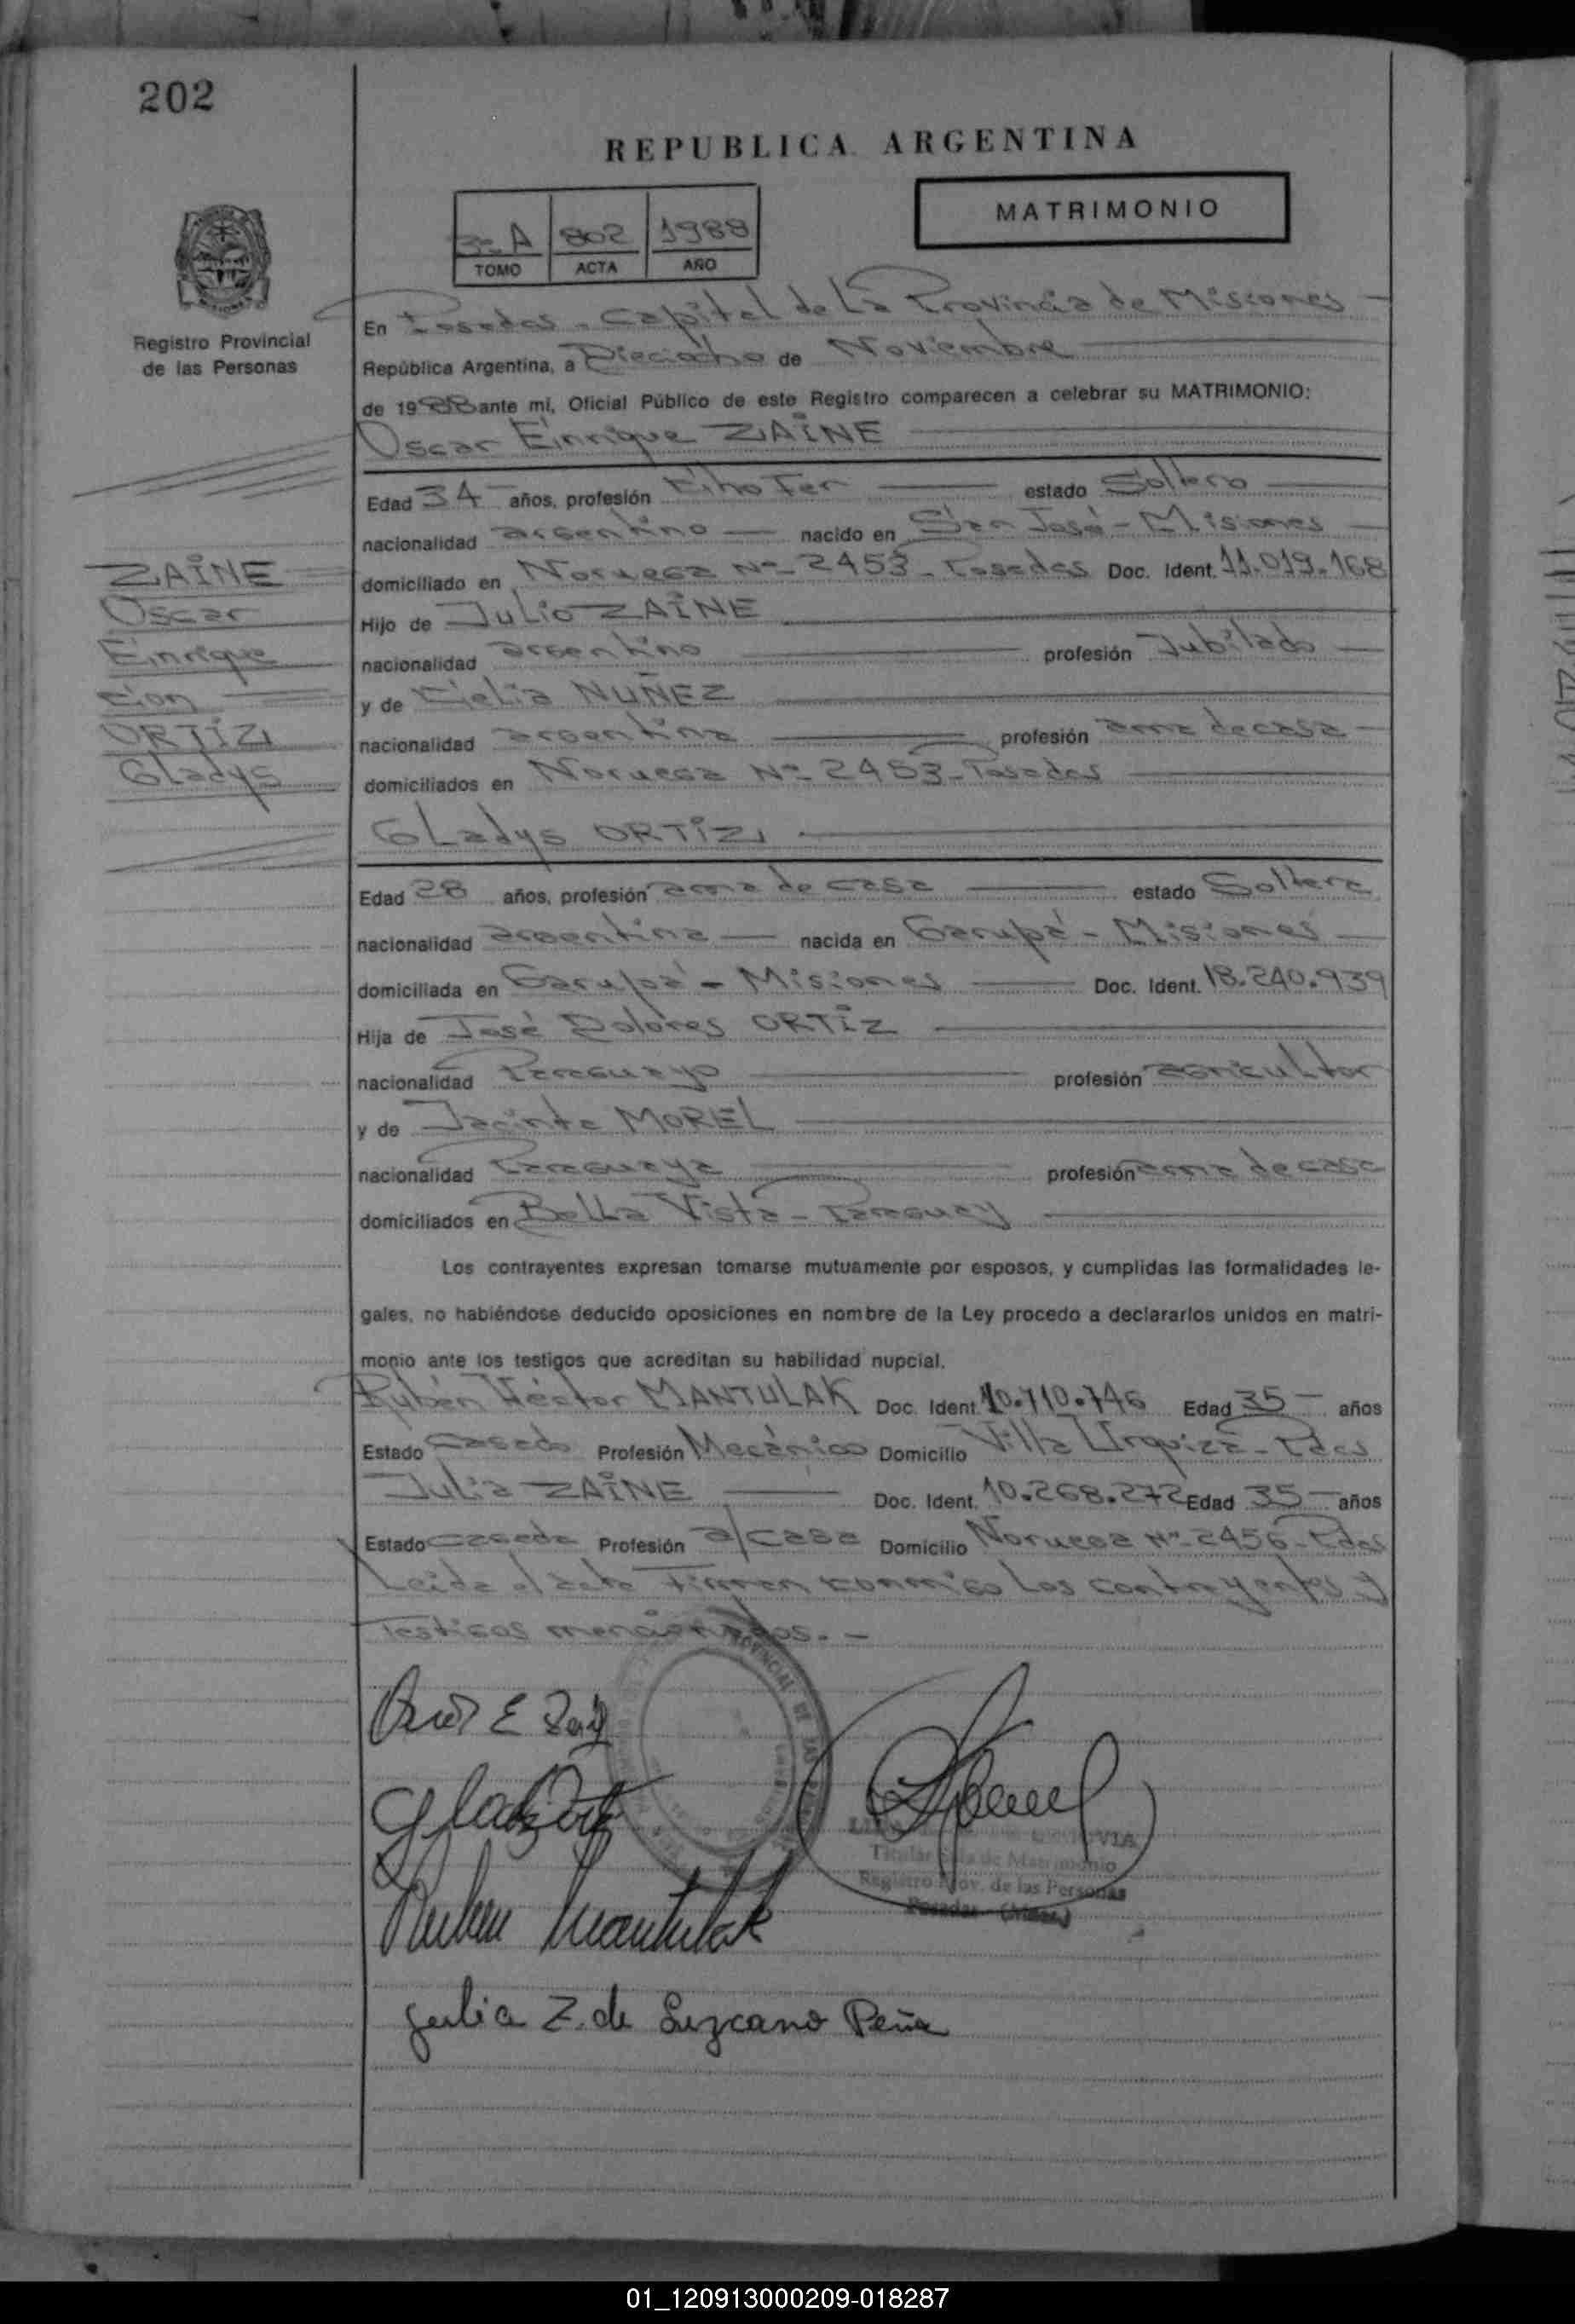 202
REPUBLICA ARGENTINA
MATRIMONIO
3º A 802 1988
TOMO ACTA AÑO
Registro Provincial
de las Personas
En Posadas - Capital de La Provincia de Misiones
República Argentina, a Dieciocho de Noviembre
de 1988 ante mi, Oficial Público de este Registro comparecen a celebrar su MATRIMONIO:
Oscar Enrique ZAINE
Edad 34 años, profesión estado Soltero
nacionalidad argentino nacido en San José - Misiones
domiciliado en Noruega Nº 2453 - Posadas Doc. Ident. 11.019.168
Hijo de Julio ZAINE
nacionalidad argentino profesión Jubilado
y de NUÑEZ
nacionalidad argentina profesión ama de casa
domiciliados en Noruega Nº 2453 - Posadas
ZAINE
Oscar
Enrique
con
ORTIZ
Gladys
Gladys ORTIZ
Edad 28 años, profesión ama de casa estado Soltera
nacionalidad argentina nacida en Garupá - Misiones
domiciliada en Garupá - Misiones Doc. Ident. 18.240.939
Hija de José Dolores ORTIZ
nacionalidad Paraguayo profesión agricultor
y de Jacinta MOREL
nacionalidad Paraguaya profesión ama de casa
domiciliados en Bella Vista - Paraguay
Los contrayentes expresan tomarse mutuamente por esposos, y cumplidas las formalidades le-
gales, no habiéndose deducido oposiciones en nombre de la Ley procedo a declararlos unidos en matri-
monio ante los testigos que acreditan su habilidad nupcial.
Rubén Héctor MANTULAK Doc. Ident. 10.710.746 Edad 35 años
Estado casado Profesión Mecánico Domicilio Villa Urquiza - Pdas
Julia ZAINE Doc. Ident. 10.268.272 Edad 35 años
Estado casada Profesión a/casa Domicilio Noruega Nº 2456 - Pdas
Leida el acta Firman conmigo Los contrayentes y
Testigos mencionados. -
Titular Sala de Matrimonio
Registro Prov. de las Personas
Posadas (Mnes.)
Ruben Mantulak
Julia Z. de Lezcano Peña
01_120913000209-018287